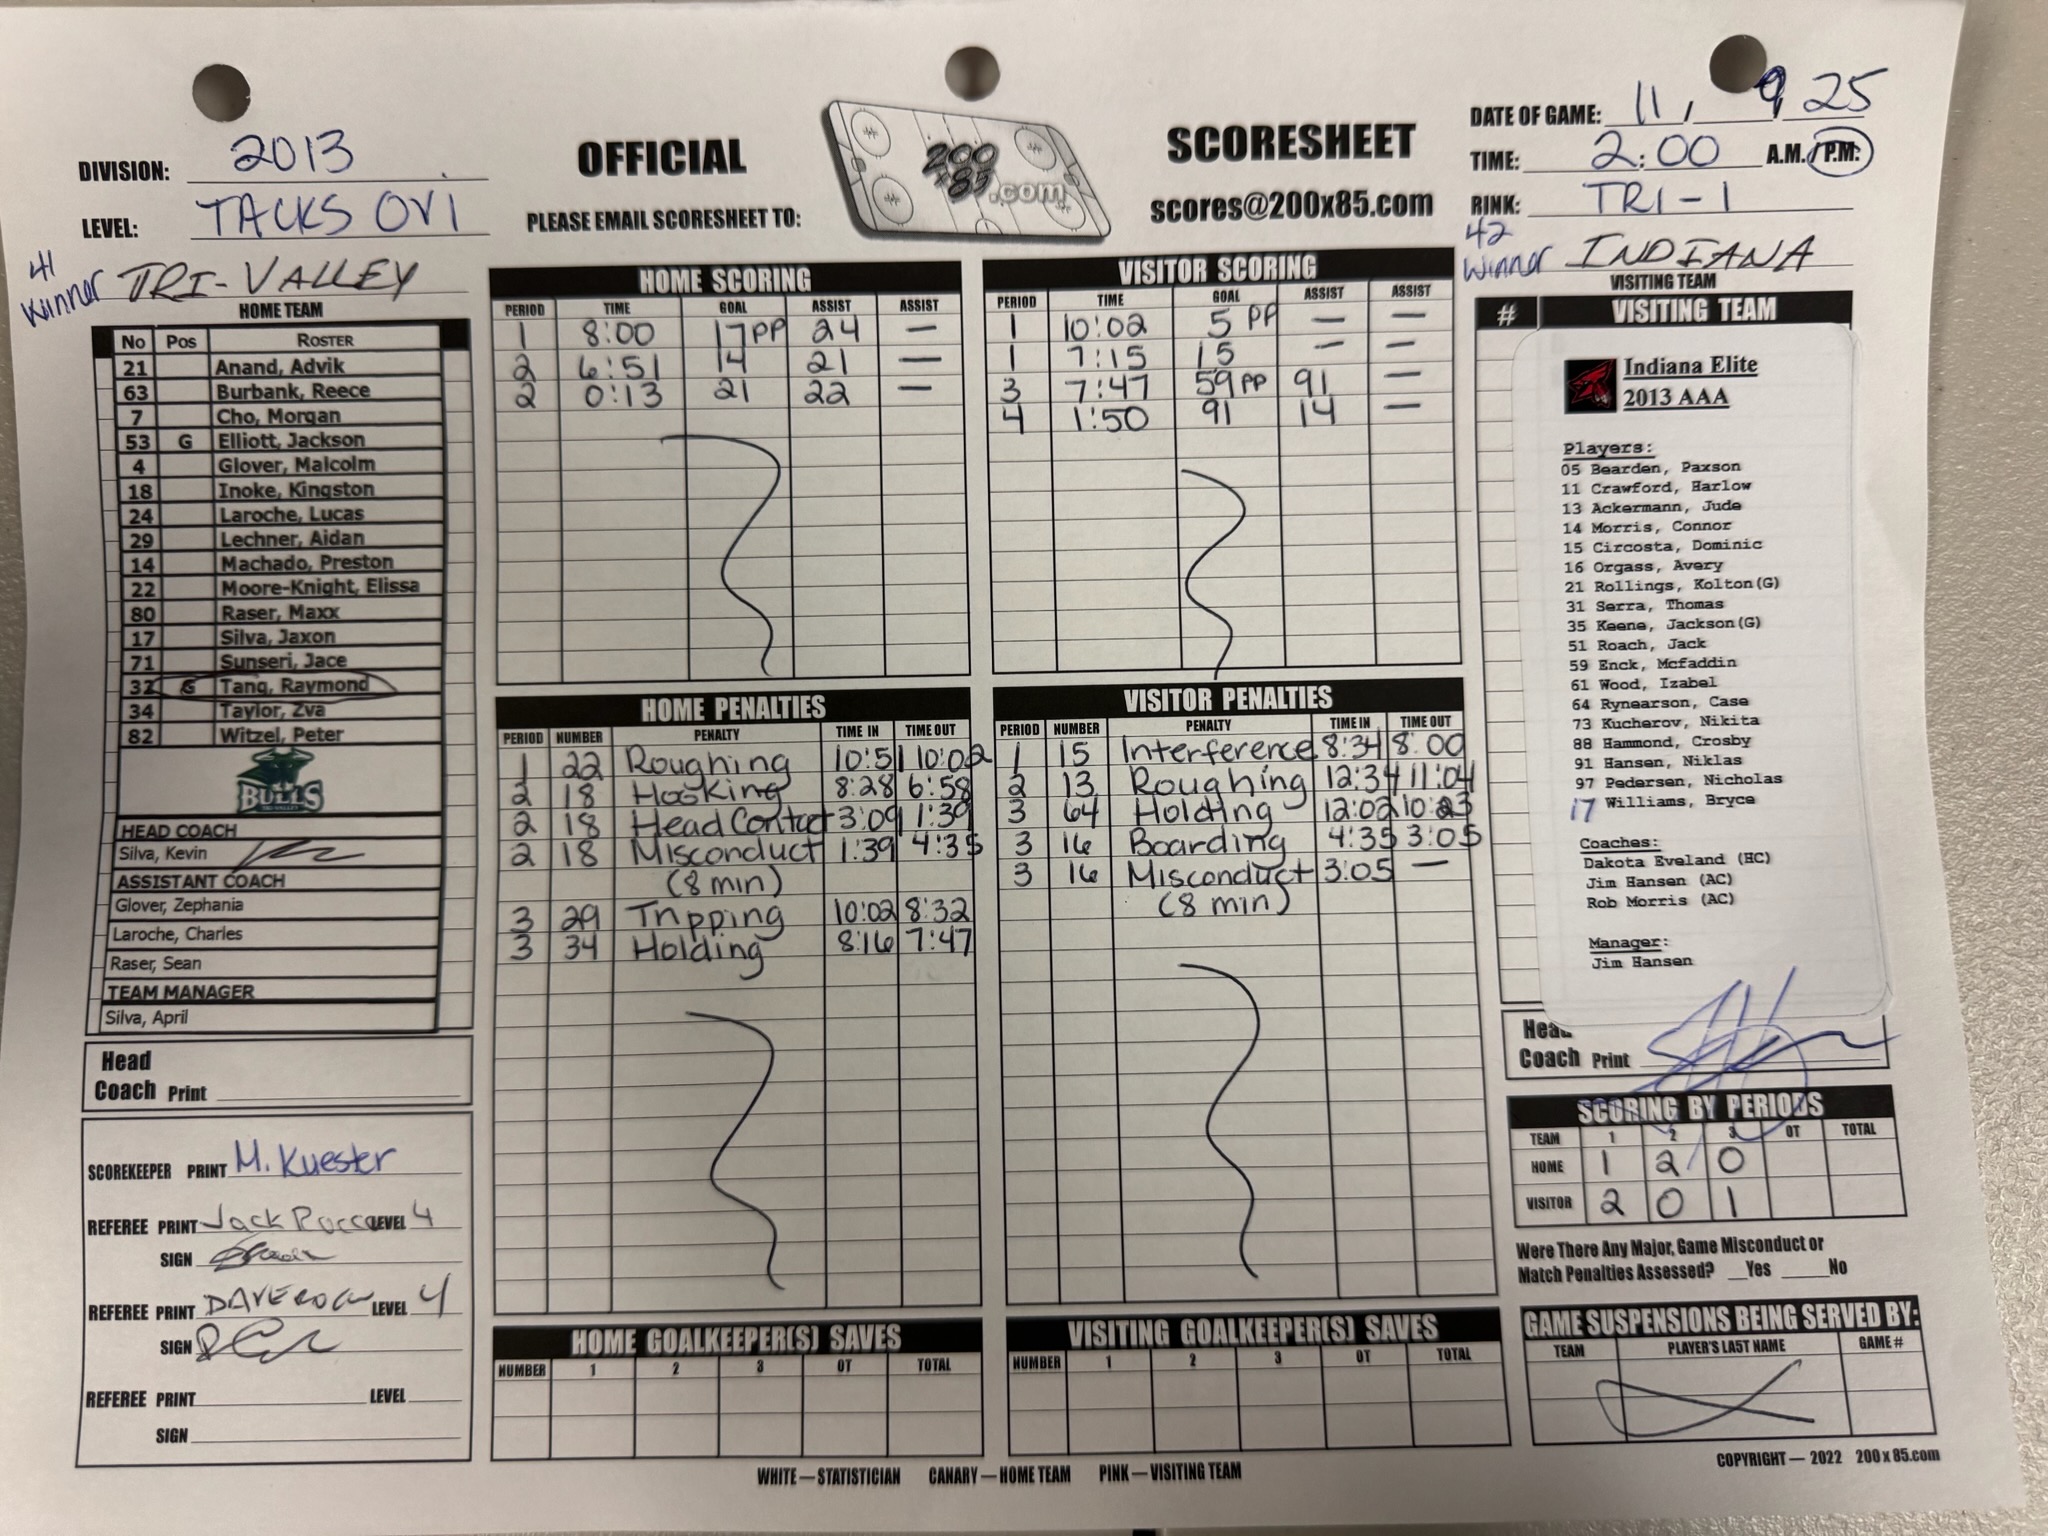 DIVISION: 2013
LEVEL: TACKS OVI
OFFICIAL SCORESHEET
PLEASE EMAIL SCORESHEET TO: scores@200x85.com
200 x85 .com
DATE OF GAME: 11, 9, 25
TIME: 2:00 A.M./P.M.
RINK: TRI-1
41 Winner TRI-VALLEY
HOME TEAM
42 Winner INDIANA
VISITING TEAM
No Pos ROSTER
21 Anand, Advik
63 Burbank, Reece
7 Cho, Morgan
53 G Elliott, Jackson
4 Glover, Malcolm
18 Inoke, Kingston
24 Laroche, Lucas
29 Lechner, Aidan
14 Machado, Preston
22 Moore-Knight, Elissa
80 Raser, Maxx
17 Silva, Jaxon
71 Sunseri, Jace
32 G Tang, Raymond
34 Taylor, Zva
82 Witzel, Peter
BULLS
TRI-VALLEY
HEAD COACH
Silva, Kevin
ASSISTANT COACH
Glover, Zephania
Laroche, Charles
Raser, Sean
TEAM MANAGER
Silva, April
Head Coach Print
SCOREKEEPER PRINT M. Kuester
REFEREE PRINT Jack LEVEL 4
SIGN
REFEREE PRINT DAVE LEVEL 4
SIGN
REFEREE PRINT LEVEL
SIGN
HOME SCORING
PERIOD TIME GOAL ASSIST ASSIST
1 8:00 17 PP 24 —
2 6:51 14 21 —
2 0:13 21 22 —
VISITOR SCORING
PERIOD TIME GOAL ASSIST ASSIST
1 10:02 5 PP — —
1 7:15 15 — —
3 7:47 59 PP 91 —
4 1:50 91 14 —
HOME PENALTIES
PERIOD NUMBER PENALTY TIME IN TIME OUT
1 22 Roughing 10:51 10:02
2 18 Hooking 8:28 6:58
2 18 Head Contact 3:09 1:39
2 18 Misconduct 1:39 4:35
(8 min)
3 29 Tripping 10:02 8:32
3 34 Holding 8:16 7:47
VISITOR PENALTIES
PERIOD NUMBER PENALTY TIME IN TIME OUT
1 15 Interference 8:34 8:00
2 13 Roughing 12:34 11:04
3 64 Holding 12:02 10:23
3 16 Boarding 4:35 3:05
3 16 Misconduct 3:05 —
(8 min)
HOME GOALKEEPER(S) SAVES
NUMBER 1 2 3 OT TOTAL
VISITING GOALKEEPER(S) SAVES
NUMBER 1 2 3 OT TOTAL
WHITE — STATISTICIAN CANARY — HOME TEAM PINK — VISITING TEAM
# VISITING TEAM
Indiana Elite
2013 AAA
Players:
05 Bearden, Paxson
11 Crawford, Harlow
13 Ackermann, Jude
14 Morris, Connor
15 Circosta, Dominic
16 Orgass, Avery
21 Rollings, Kolton(G)
31 Serra, Thomas
35 Keene, Jackson(G)
51 Roach, Jack
59 Enck, Mcfaddin
61 Wood, Izabel
64 Rynearson, Case
73 Kucherov, Nikita
88 Hammond, Crosby
91 Hansen, Niklas
97 Pedersen, Nicholas
17 Williams, Bryce
Coaches:
Dakota Eveland (HC)
Jim Hansen (AC)
Rob Morris (AC)
Manager:
Jim Hansen
Head Coach Print
SCORING BY PERIODS
TEAM 1 2 3 OT TOTAL
HOME 1 2 0
VISITOR 2 0 1
Were There Any Major, Game Misconduct or
Match Penalties Assessed? __Yes ____No
GAME SUSPENSIONS BEING SERVED BY:
TEAM PLAYER'S LAST NAME GAME #
COPYRIGHT — 2022 200 x 85.com